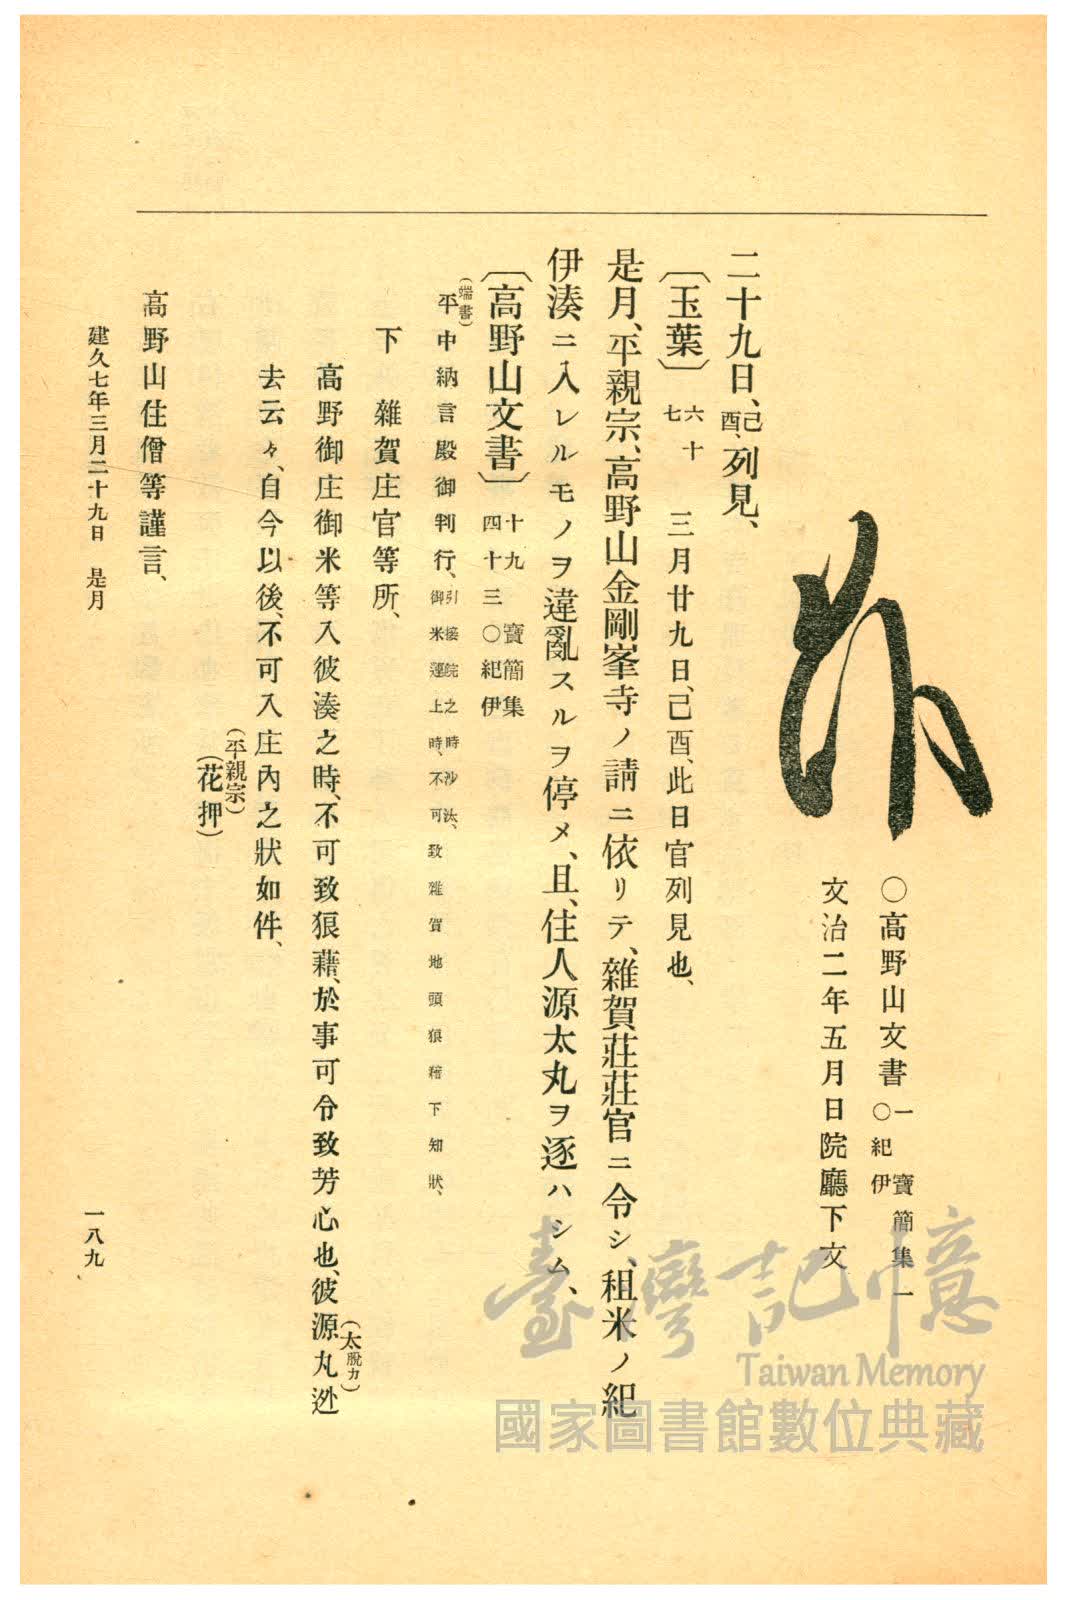 〇高野山文書 一〇紀伊 寶簡集一
文治二年五月日院廳下文
二十九日、己酉、列見、
〔玉葉〕 六十七 三月廿九日、己酉、此日官列見也、
是月、平親宗、高野山金剛峯寺ノ請ニ依リテ、雜賀莊莊官ニ令シ、租米ノ紀
伊湊ニ入レルモノヲ違亂スルヲ停メ、且、住人源太丸ヲ逐ハシム、
〔高野山文書〕 十九 寶簡集 四十三 〇紀伊
(端書)
平中納言殿御判行、引接院之時沙汰、御米運上時、不可致雜賀地頭狼藉下知狀、
下 雜賀庄官等所、
高野御庄御米等入彼湊之時、不可致狼藉、於事可令致芳心也、彼源(太脫カ)丸迯
去云々、自今以後、不可入庄內之狀如件、
(平親宗)
(花押)
高野山住僧等謹言、
建久七年三月二十九日 是月
一八九
臺灣記憶
Taiwan Memory
國家圖書館數位典藏